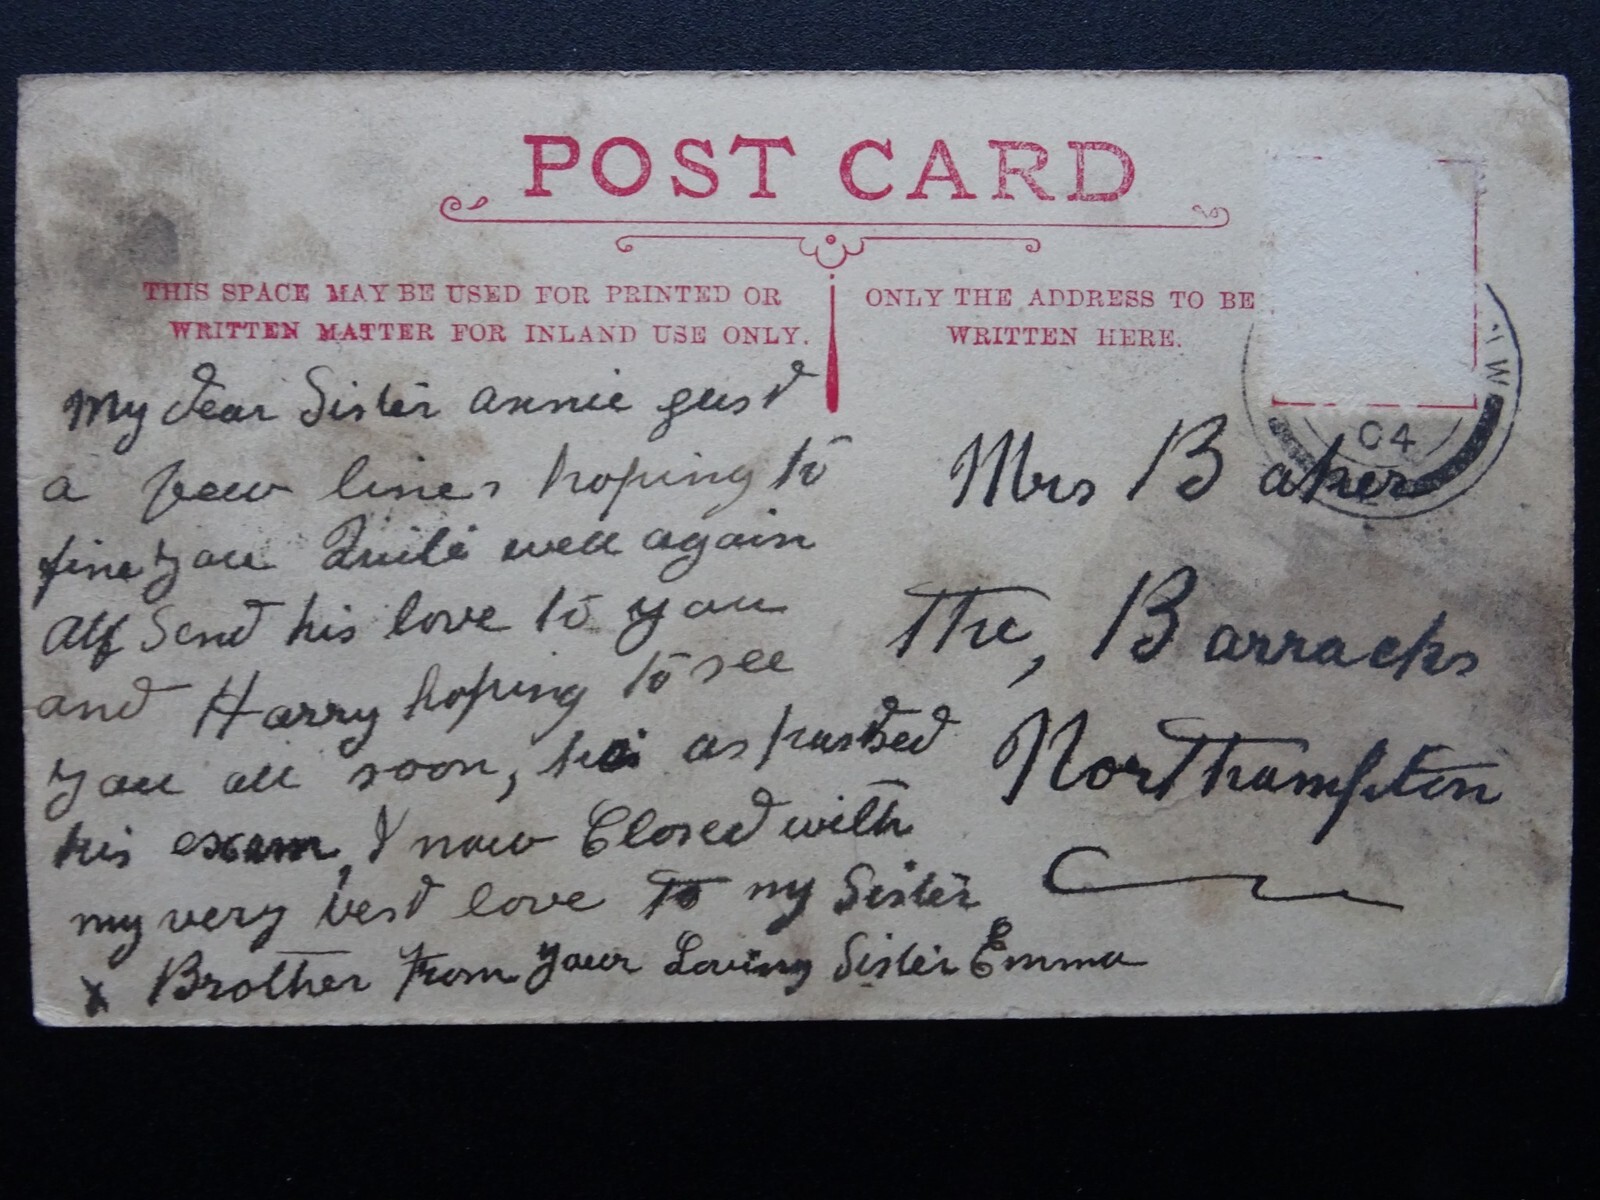 POST CARD
THIS SPACE MAY BE USED FOR PRINTED OR
WRITTEN MATTER FOR INLAND USE ONLY.
ONLY THE ADDRESS TO BE
WRITTEN HERE.
My dear Sister annie gust
a few lines hoping to
fine you Quite well again
Alf Send his love to you
and Harry hoping to see
you all soon, he as passed
his exam, I now Closed with
my very best love to my Sister
x Brother From your Loving Sister Emma
W
04
Mrs Baker
The, Barracks
Northampton